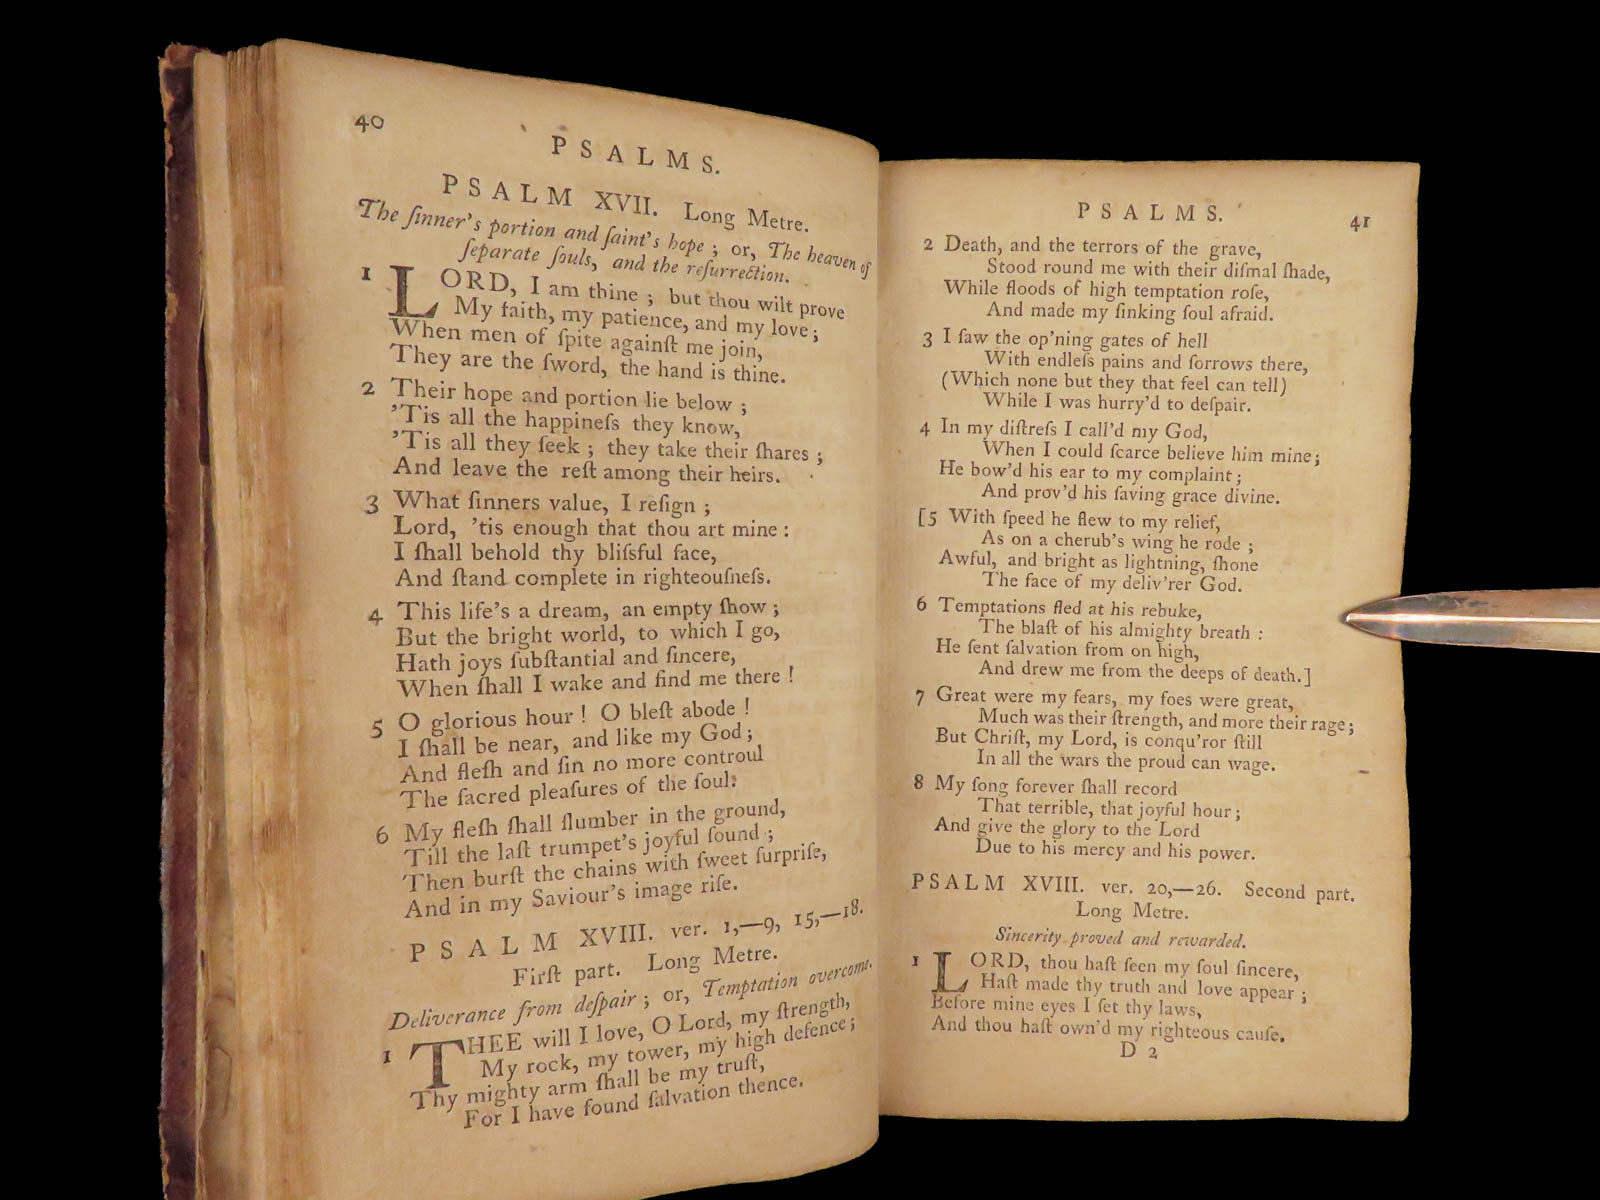 40
PSALMS.
PSALM XVII. Long Metre.
The ſinner's portion and ſaint's hope; or, The heaven of
ſeparate ſouls, and the reſurrection.
1 LORD, I am thine; but thou wilt prove
My faith, my patience, and my love;
When men of ſpite againſt me join,
They are the ſword, the hand is thine.
2 Their hope and portion lie below;
'Tis all the happineſs they know,
'Tis all they ſeek; they take their ſhares;
And leave the reſt among their heirs.
3 What ſinners value, I reſign;
Lord, 'tis enough that thou art mine:
I ſhall behold thy bliſsful face,
And ſtand complete in righteouſneſs.
4 This life's a dream, an empty ſhow;
But the bright world, to which I go,
Hath joys ſubſtantial and ſincere,
When ſhall I wake and find me there!
5 O glorious hour! O bleſt abode!
I ſhall be near, and like my God;
And fleſh and ſin no more controul
The ſacred pleaſures of the ſoul.
6 My fleſh ſhall ſlumber in the ground,
Till the laſt trumpet's joyful ſound;
Then burſt the chains with ſweet ſurpriſe,
And in my Saviour's image riſe.
PSALM XVIII. ver. 1,—9, 15,—18.
Firſt part. Long Metre.
Deliverance from deſpair; or, Temptation overcome.
1 THEE will I love, O Lord, my ſtrength,
My rock, my tower, my high defence;
Thy mighty arm ſhall be my truſt,
For I have found ſalvation thence.
PSALMS.
41
2 Death, and the terrors of the grave,
Stood round me with their diſmal ſhade,
While floods of high temptation roſe,
And made my ſinking ſoul afraid.
3 I ſaw the op'ning gates of hell
With endleſs pains and ſorrows there,
(Which none but they that feel can tell)
While I was hurry'd to deſpair.
4 In my diſtreſs I call'd my God,
When I could ſcarce believe him mine;
He bow'd his ear to my complaint;
And prov'd his ſaving grace divine.
[5 With ſpeed he flew to my relief,
As on a cherub's wing he rode;
Awful, and bright as lightning, ſhone
The face of my deliv'rer God.
6 Temptations fled at his rebuke,
The blaſt of his almighty breath:
He ſent ſalvation from on high,
And drew me from the deeps of death.]
7 Great were my fears, my foes were great,
Much was their ſtrength, and more their rage;
But Chriſt, my Lord, is conqu'ror ſtill
In all the wars the proud can wage.
8 My ſong forever ſhall record
That terrible, that joyful hour;
And give the glory to the Lord
Due to his mercy and his power.
PSALM XVIII. ver. 20,—26. Second part.
Long Metre.
Sincerity proved and rewarded.
1 LORD, thou haſt ſeen my ſoul ſincere,
Haſt made thy truth and love appear;
Before mine eyes I ſet thy laws,
And thou haſt own'd my righteous cauſe.
D 2